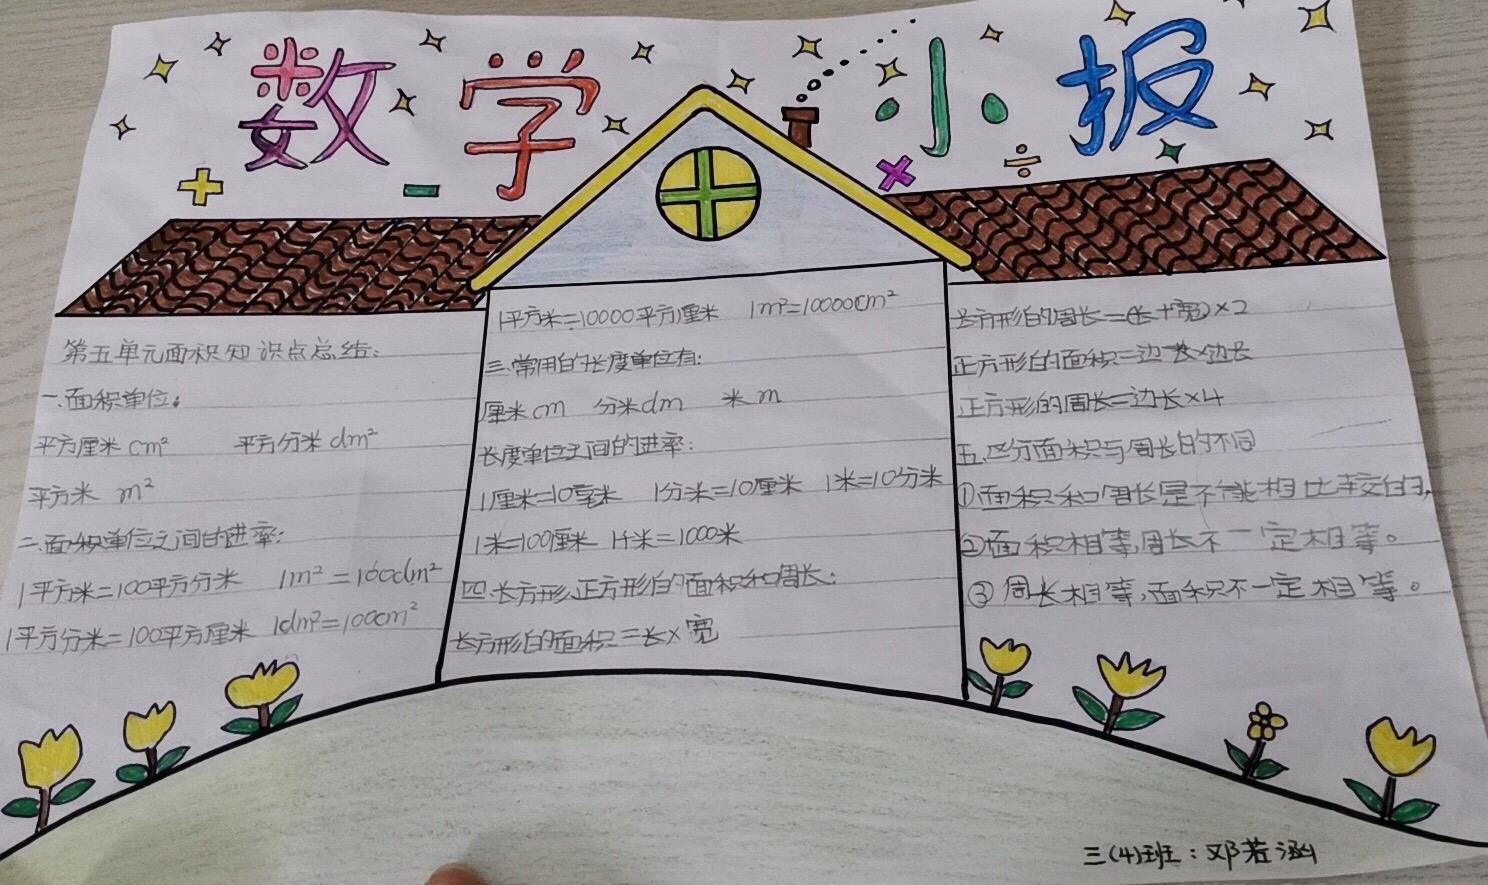 数学小报
第五单元面积知识点总结:
一.面积单位:
平方厘米 cm² 平方分米 dm²
平方米 m²
二.面积单位之间的进率:
1平方米=100平方分米 1m²=100dm²
1平方分米=100平方厘米 1dm²=100cm²
1平方米=10000平方厘米 1m²=10000cm²
三.常用的长度单位有:
厘米cm 分米dm 米m
长度单位之间的进率:
1厘米=10毫米 1分米=10厘米 1米=10分米
1米=100厘米 1千米=1000米
四.长方形、正方形的面积和周长:
长方形的面积=长×宽
长方形的周长=(长+宽)×2
正方形的面积=边长×边长
正方形的周长=边长×4
五.区分面积与周长的不同
①面积和周长是不能相比较的,
②面积相等,周长不一定相等。
③周长相等,面积不一定相等。
三(4)班:邓若涵